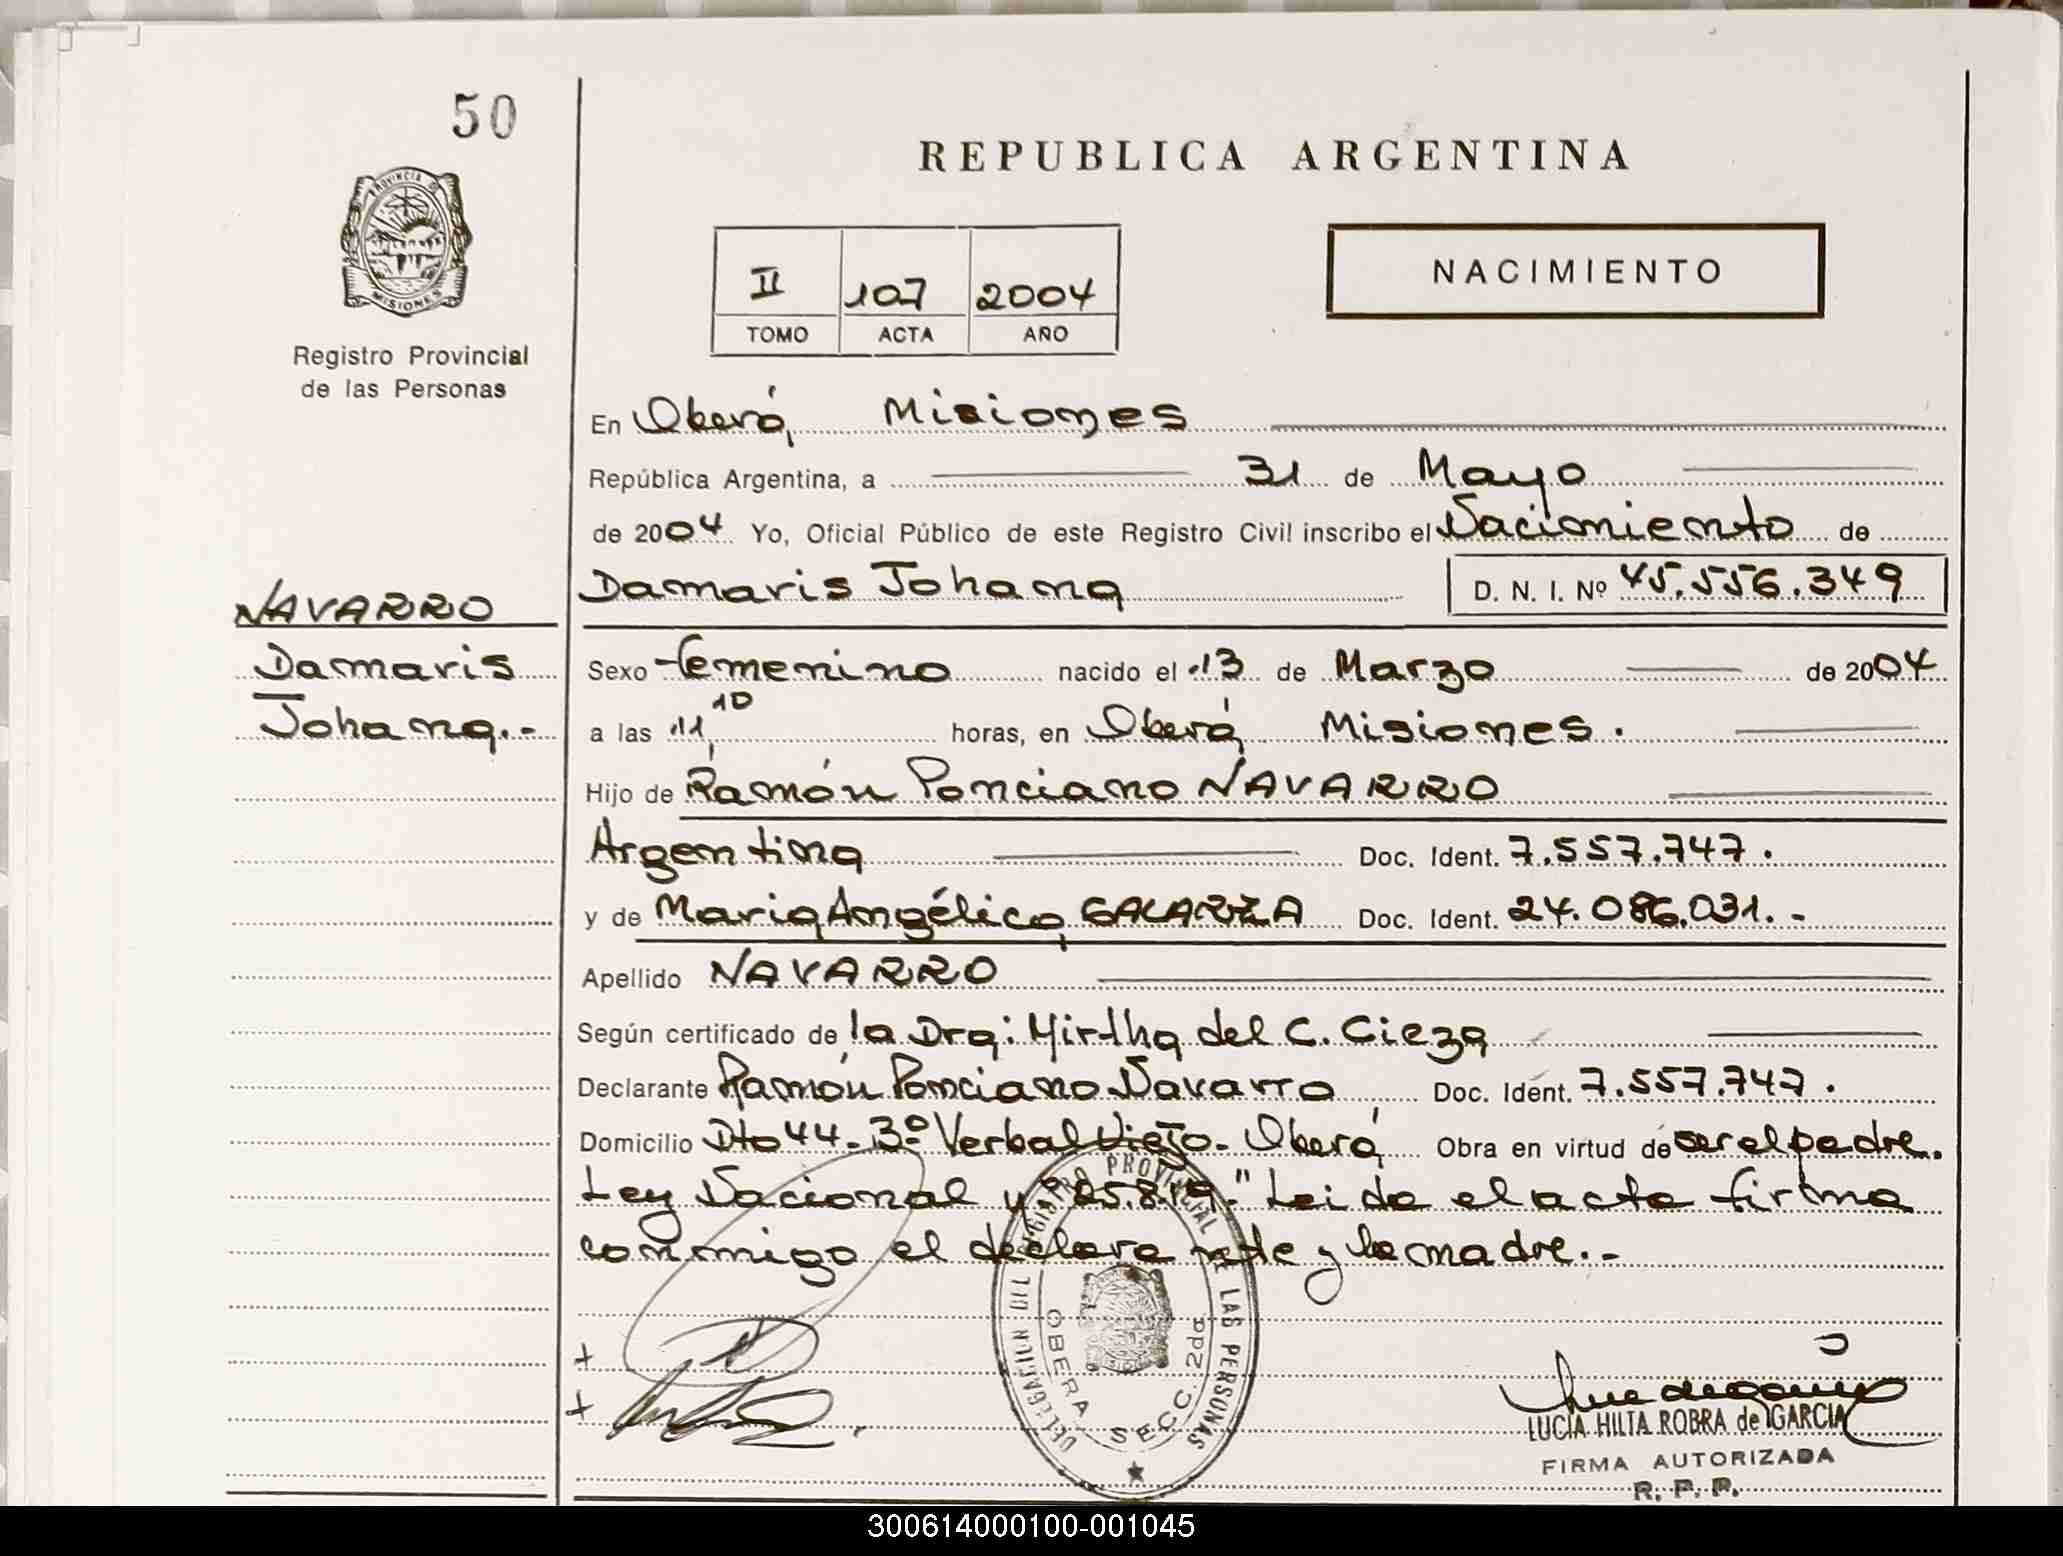 50
REPUBLICA ARGENTINA
PROVINCIA DE
MISIONES
II 107 2004
TOMO ACTA AÑO
NACIMIENTO
Registro Provincial
de las Personas
En Oberá, Misiones
República Argentina, a 31 de Mayo
de 2004 Yo, Oficial Público de este Registro Civil inscribo el Nacimiento de
Damaris Johana D. N. I. Nº 45.556.349
NAVARRO
Damaris
Johana.-
Sexo femenino nacido el 13 de Marzo de 2004
a las 11,10 horas, en Oberá, Misiones.
Hijo de Ramón Ponciano NAVARRO
Argentina Doc. Ident. 7.557.747.
y de Maria Angélica, GALARZA Doc. Ident. 24.086.031.-
Apellido NAVARRO
Según certificado de la Dra: Mirtha del C. Cieza
Declarante Ramón Ponciano Navarro Doc. Ident. 7.557.747.
Domicilio Dto 44- 3º Verbal Viejo- Oberá Obra en virtud de ser el padre.
Ley Nacional nº 25.819." Leida el acta firma
conmigo el declarante y la madre.-
DELEGACION DEL REGISTRO PROVINCIAL DE LAS PERSONAS
OBERA SECC. 2da
LUCIA HILTA ROBRA de GARCIA
FIRMA AUTORIZADA
R. P. P.
300614000100-001045